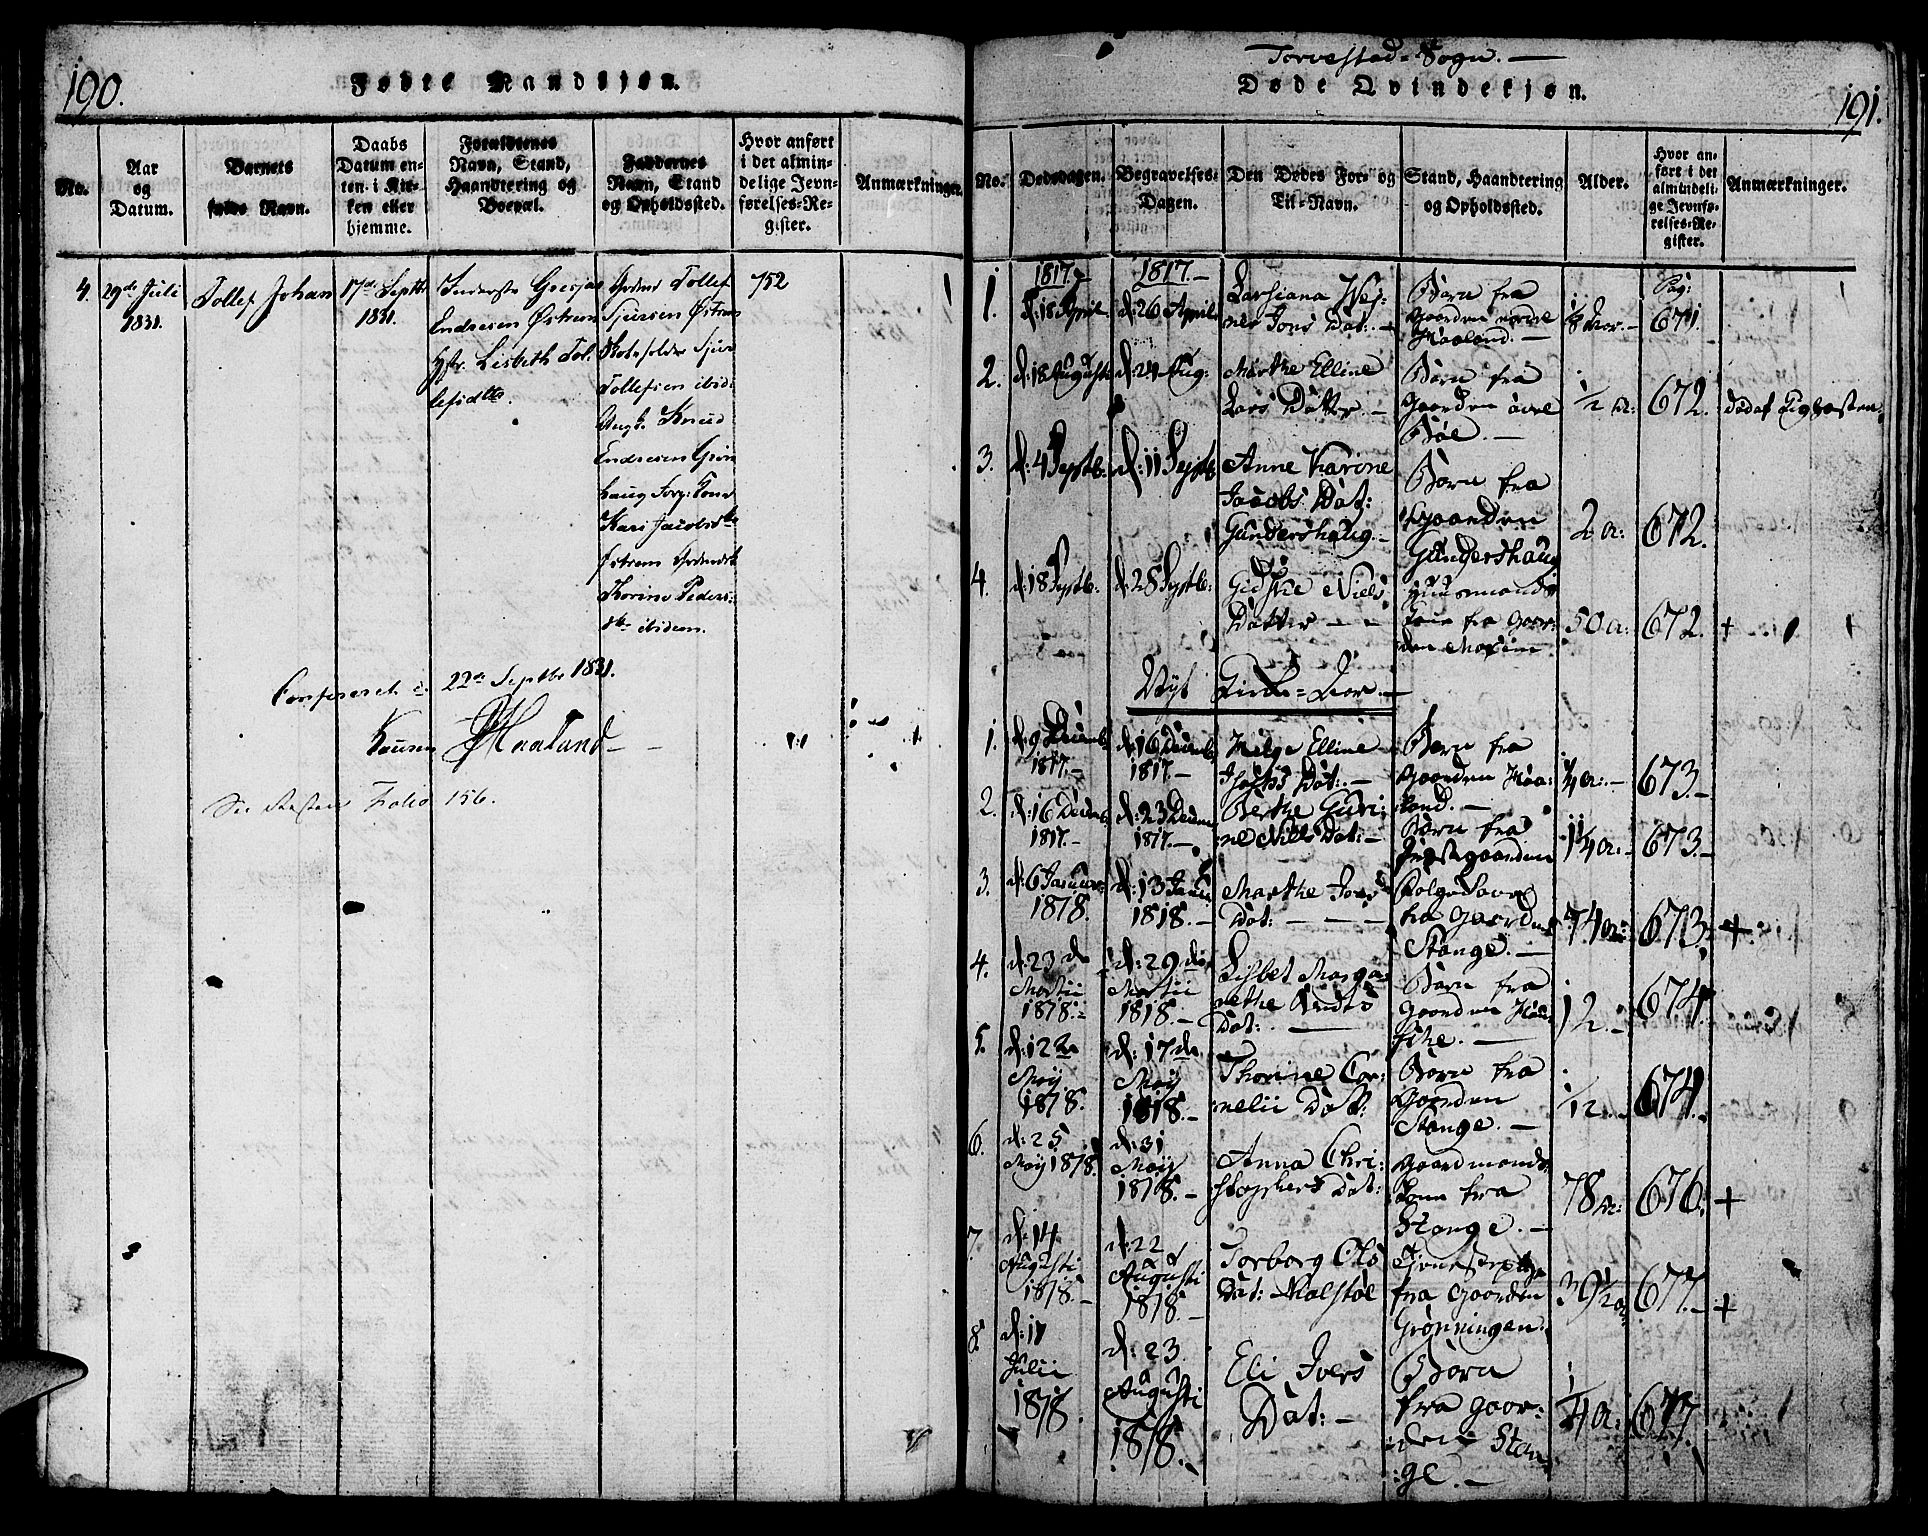 190.
Fødte Mandkjøn.
No.
Aar og Datum.
Barnets fulde Navn.
Daabs Datum enten i Kirken eller hjemme.
Forældrenes Navn, Stand, Haandtering og Boepæl.
Faddernes Navn, Stand og Opholdssted.
Hvor anført i det almindelige Jevnførelses-Register.
Anmærkninger.
4.
29de Juli
1831.
Tollef Johan
17de Septbr
1831.
Endresen Østrem
Hstr. Lisbeth Tol-
lefsdtr.
Tollef
Sjursen Østrem
Sjur
Tollefsen ibid:
Ungk. Knud
Endresen Grin
haug
Kari Jacobsdtr
Østrem
Korine Peders-
dtr ibidem.
752
Confereret d. 22de Septbr 1831.
Haaland
Folio 156.
Torvestad-Sogn.
Døde Qvindekjøn.
191.
No.
Dødsdagen.
Begravelses-Dagen.
Den Dødes For- og Til-Navn.
Stand, Haandtering og Opholdssted.
Alder.
Hvor anført i det almindelige Jevnførelses-Register.
Anmærkninger.
1.
1817.
d: 18 April.
1817.
d: 26 April.
Larsiana Wej-
ner Jons Dat:
Barn fra
Gaarden nordre
Haaland.
Pag:
671.
2.
d: 18 Augusti
d: 24 Aug:
Marthe Elline
Lars Datter
Barn fra
Gaarden øvre
Bøe.
1/2 ar:
672.
3.
d: 4 Septb.
d: 11 Septb
Anne Karine
Jacobs Dat:
Gundershaug.
Barn fra
Gaarden
Gundershaug
2 a:
672.
4.
d: 18 Septb.
d: 28 Septb:
Gidske Niels
Datter
Huusmands
Kone fra Gaar-
den
50 a:
672.
+
Nyt Kirke-Aar.
1.
d: 9 Decemb
1817.
d: 16 Decemb
1817.
Helge Elline
Dat:
Barn fra
Gaarden Haa-
land.
1/4 a:
673.
2.
d: 16 Decemb
1817.
d: 23 Decem
1817.
Berthe Guri-
ne Niels Dat:
Barn fra
1 1/4 a:
673.
3.
d: 6 Januar
1818.
d: 13 Janu
1818.
Marthe Joes
Dat:
fra Gaarden
Stange.
74 a:
673.
+
4.
d: 23 de
Martii
1818.
d: 29 de
Martii
1818.
Lisbet Marga-
rethe Knuds
Dat:
Barn fra
Gaarden
12.
674.
5.
d: 12 de
Maij
1818.
d: 17 de
Maij
1818.
Thorine Cor-
nelii Dat:
Barn fra
Gaarden
Stange.
1/12.
674.
6.
d: 25
Maij 1818.
d: 31
Maij
1818.
Anna Chri-
stophers Dat:
Gaardmands
Kone fra
Stange.
78 ar:
676.
+
7.
d: 14
Augusti
1818.
d: 22
Augusti
1818.
Torborg Ols
Dat: Nolstøl
fra Gaarden
Grønningen.
30 1/2 ar
677.
+
8.
d: 11
Julii
1818.
d: 23
Augusti
1818.
Eli Ivers
Dat:
Barn
fra Gaar-
den Stan-
ge.
1/4 a:
677.